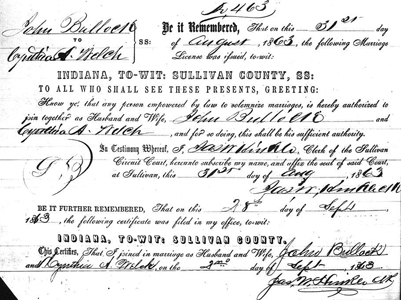 463
John Bullock
TO
Cynthia A. Welch
SS:
Be it Remembered, That on this 31st
day of August 1863, the following Marriage
License was issued, to-wit:
INDIANA, TO-WIT: SULLIVAN COUNTY, SS:
TO ALL WHO SHALL SEE THESE PRESENTS, GREETING:
Know ye: that any person empowered by law to solemnize marriages, is hereby authorized to
join together as Husband and Wife, John Bullock
and Cynthia A. Welch, and for so doing, this shall be his sufficient authority.
In Testimony Whereof, I, Jas W Hinkle, Clerk of the Sullivan
Circuit Court, hereunto subscribe my name, and affix the seal of said Court,
at Sullivan, this 31st day of Aug 1863
Jas W Hinkle Clk
BE IT FURTHER REMEMBERED, That on this 28th day of Sept
1863, the following certificate was filed in my office, to-wit:
INDIANA, TO-WIT: SULLIVAN COUNTY,
This Certifies, That I joined in marriage as Husband and Wife, John Bullock
and Cynthia A Welch, on the day of Sept 1863
Jas. W. Hinkle Clk